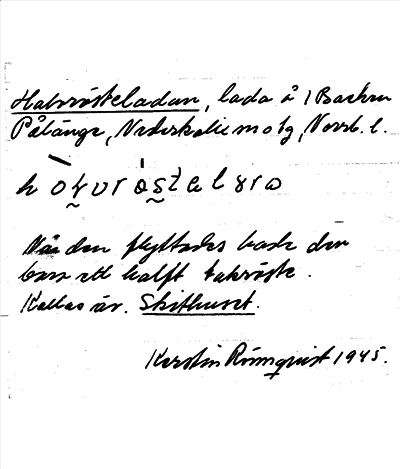 Halvrösteladan, lada å 1 Backen
Pålänge, Nederkalix sn o tg, Norrb. l.
När den flyttades hade den
bara ett halft takröste.
Kallas äv. Skithuset.
Kerstin Rönnquist 1945.